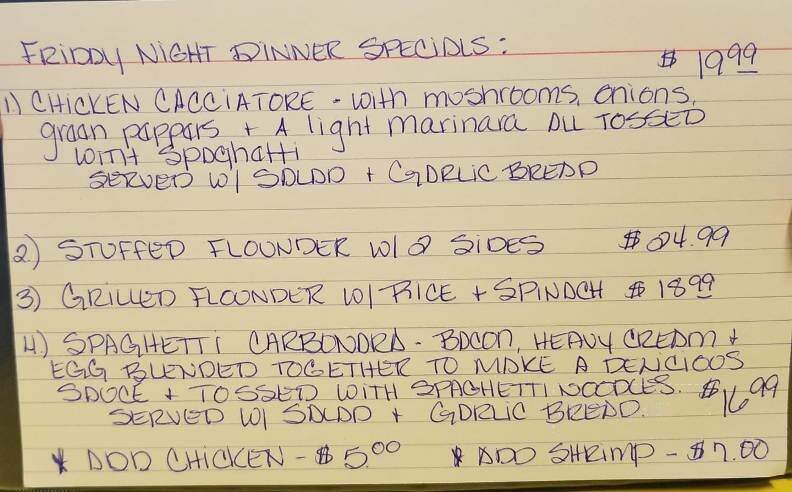 FRIDAY NIGHT DINNER SPECIALS:
$ 19.99
1) CHICKEN CACCIATORE - with mushrooms, onions,
green peppers + A light marinara ALL TOSSED
WITH Spaghetti
SERVED W/ SALAD + GARLIC BREAD
2) STUFFED FLOUNDER W/ 2 SIDES $24.99
3) GRILLED FLOUNDER W/ RICE + SPINACH $ 18.99
4) SPAGHETTI CARBONARA - BACON, HEAVY CREAM +
EGG BLENDED TOGETHER TO MAKE A DELICIOUS
SAUCE + TOSSED WITH SPAGHETTI NOODLES. $16.99
SERVED W/ SALAD + GARLIC BREAD.
* ADD CHICKEN - $5.00 * ADD SHRIMP - $7.00